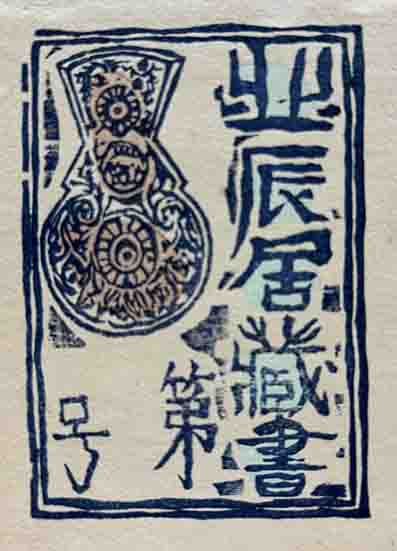 亚辰居藏書
第
号